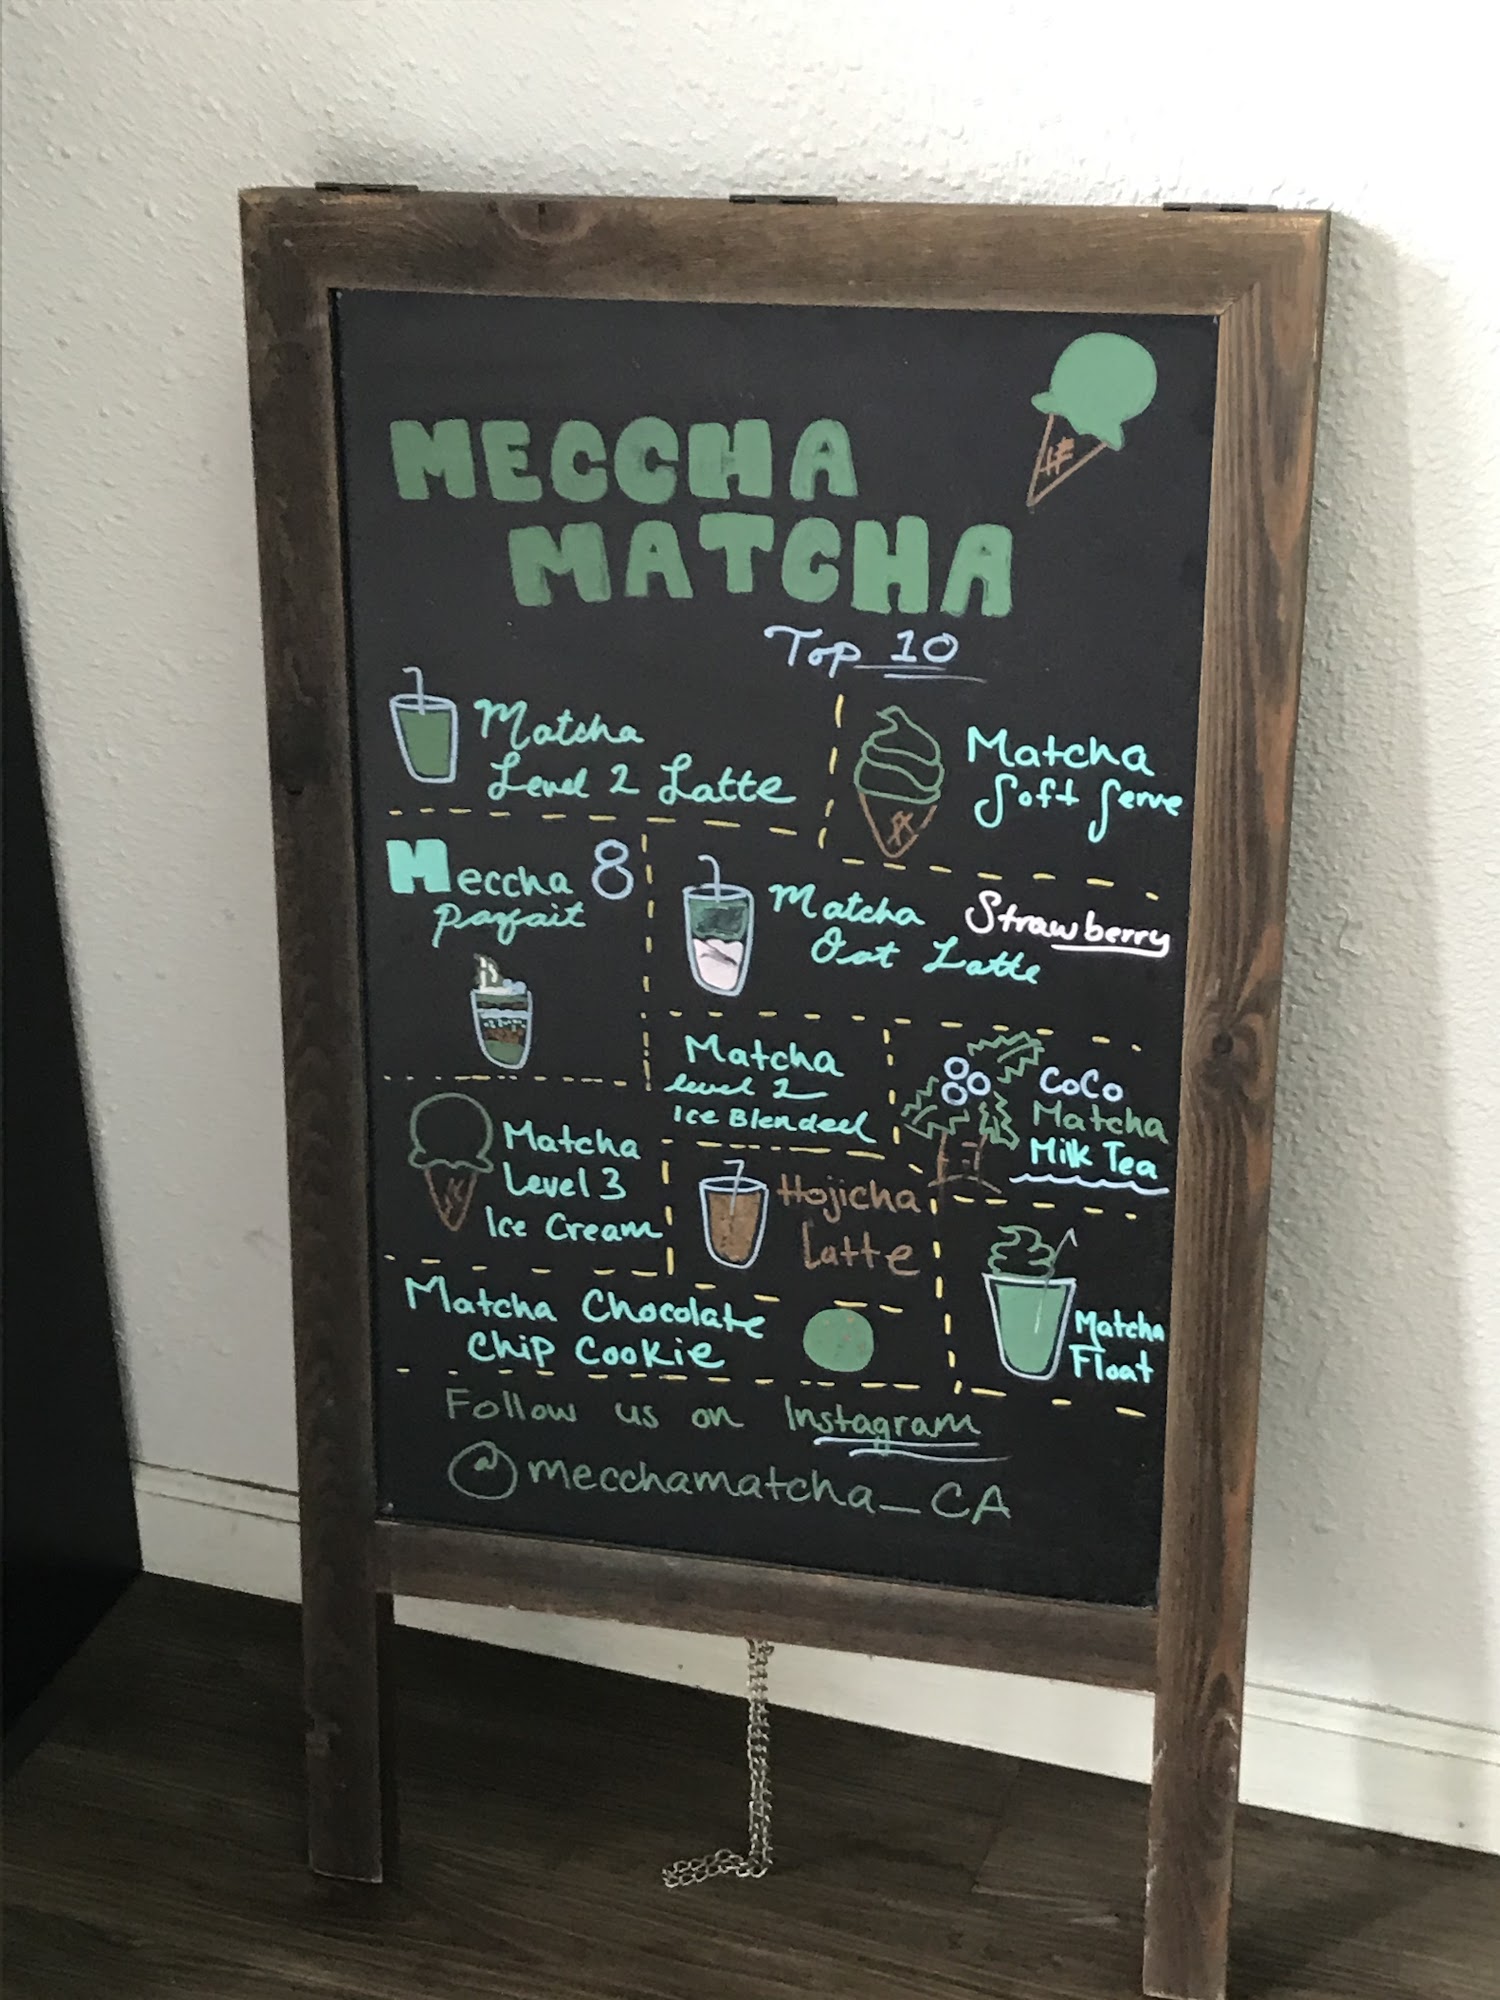 MECCHA
MATCHA
Top 10
Matcha
Level 2 Latte
Matcha
Soft Serve
Meccha 8
parfait
Matcha Strawberry
Oat Latte
Matcha
level 2
Ice Blended
CoCo
Matcha
Milk Tea
Matcha
Level 3
Ice Cream
Hojicha
Latte
Matcha
Float
Matcha Chocolate
Chip Cookie
Follow us on Instagram
@mecchamatcha_CA